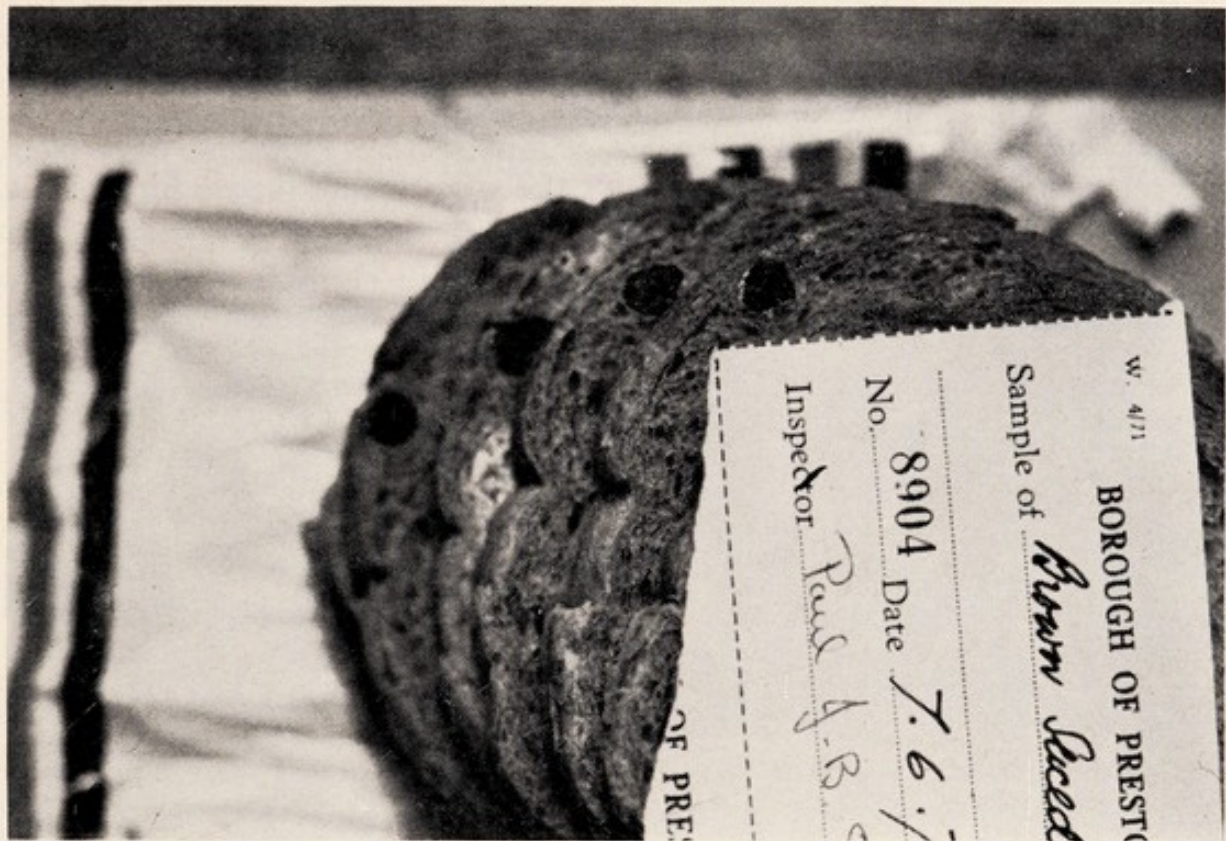 W. 4/71
BOROUGH OF PRESTO
Sample of Brown Sliced
No. 8904 Date 7.6.
Inspector Paul J-B
OF PRES